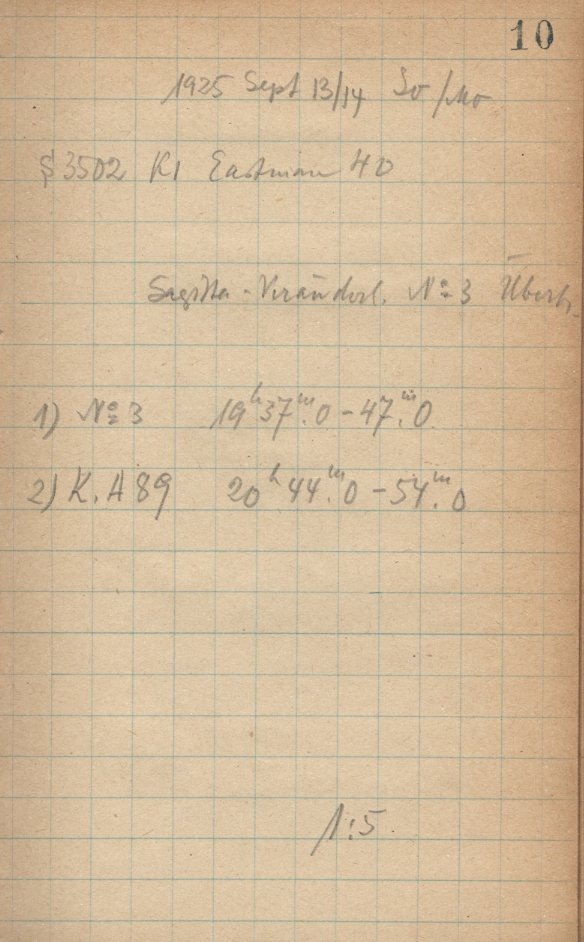 10
1925 Sept 13/14 So/Mo
S3502 K1 Eastman 40
Sagitta-Veränderl. № 3 Überh.
1) № 3 19ʰ37ᵐ.0 - 47ᵐ.0
2) K.A 89 20ʰ44ᵐ.0 - 54ᵐ.0
1:5